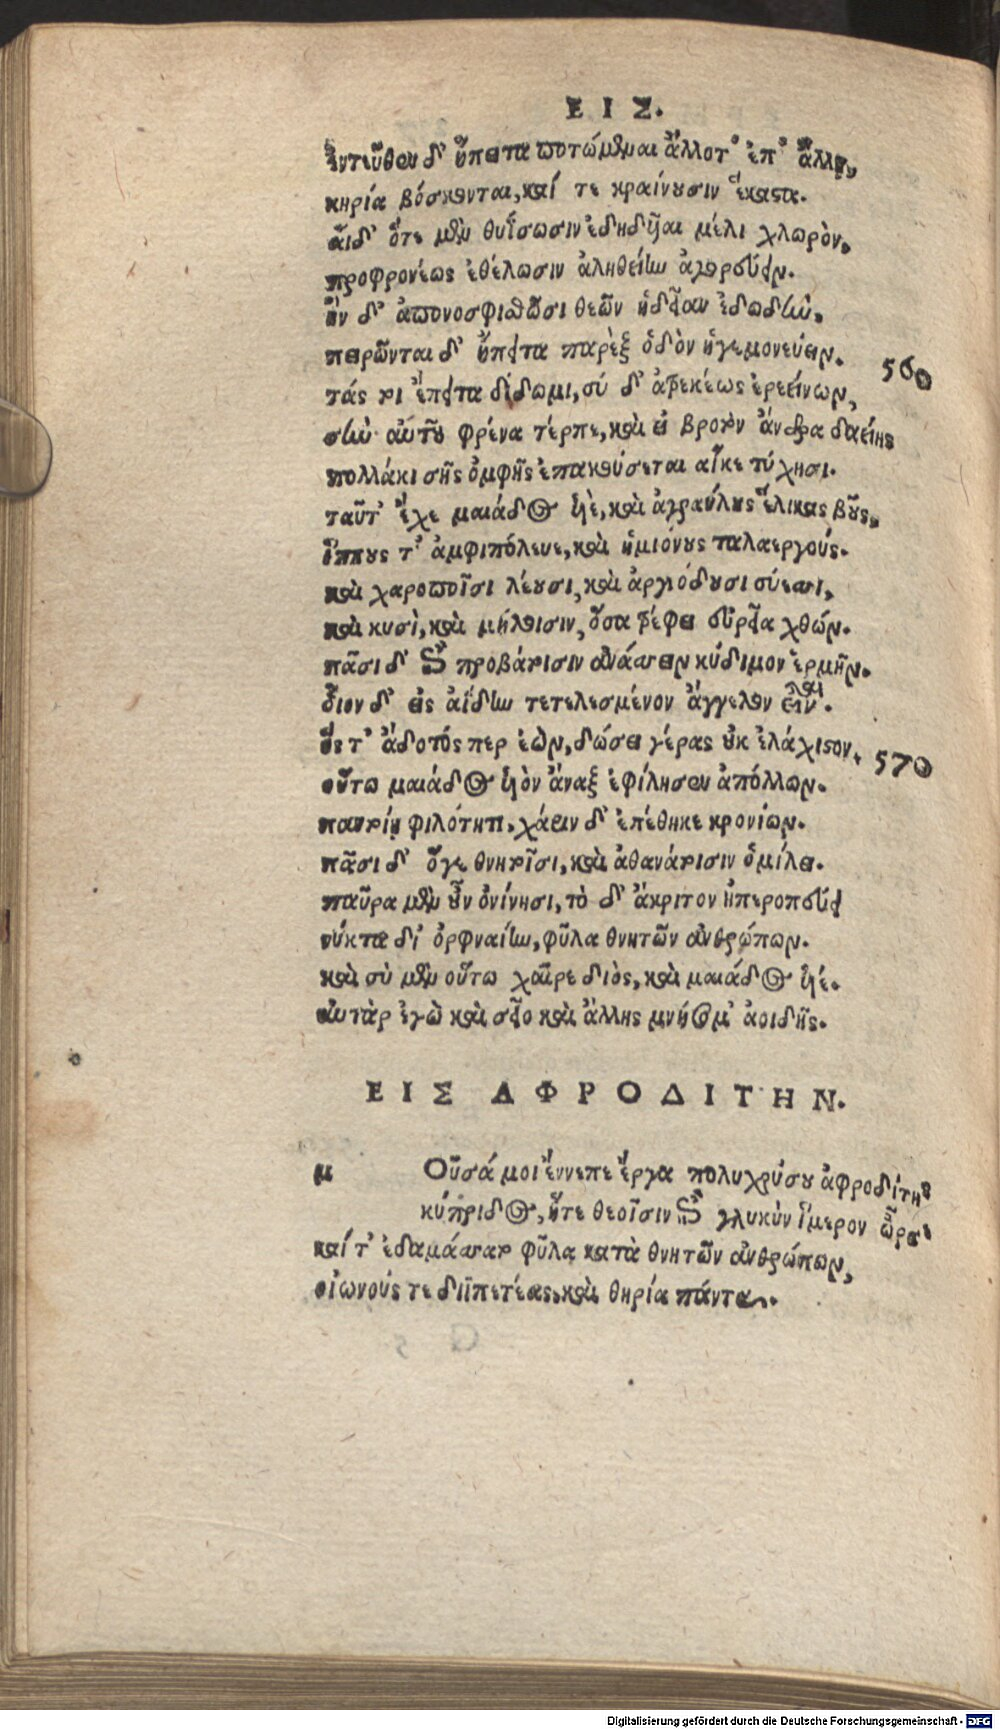 ΕΙΣ.
ἐντεῦθεν δ' ἤπειτα ποτώμεναι ἄλλοτ' ἐπ' ἄλλῃ,
κηρία βόσκονται, καί τε κραίνουσιν ἕκαστα.
αἱ δ' ὅτε μὲν θυΐσωσιν ἐδηδυῖαι μέλι χλωρὸν,
προφρονέως ἐθέλωσιν ἀληθείην ἀγορεύειν.
ἢν δ' ἀπονοσφισθῶσι θεῶν ἡδεῖαν ἐδωδὴν.
πειρῶνται δ' ἤπειτα παρὲξ ὁδὸν ἡγεμονεύειν. 560
τάς τοι ἔπειτα δίδωμι, σύ δ' ἀτρεκέως ἐρεείνων,
σὴν αὐτοῦ φρένα τέρπε, καὶ εἰ βροτὸν ἄνδρα δαείης
πολλάκι σῆς ὀμφῆς ἐπακούσεται αἴκε τύχησι.
ταῦτ' ἔχε μαιάδος υἱὲ, καὶ ἀγραύλους ἕλικας βοῦς,
ἵππους τ' ἀμφιπόλευε, καὶ ἡμιόνους ταλαεργούς.
καὶ χαροποῖσι λέουσι, καὶ ἀργιόδουσι σύεσσι,
καὶ κυσὶ, καὶ μήλοισιν, ὅσα τρέφει εὐρεῖα χθών.
πᾶσι δ' ἐπὶ προβάτοισιν ἀνάσσειν κύδιμον ἑρμῆν.
οἶον δ' εἰς ἀΐδην τετελεσμένον ἄγγελον εἶναι.
ὅς τ' ἄδοτός περ ἐὼν, δώσει γέρας οὐκ ἐλάχιστον. 570
οὕτω μαιάδος υἱὸν ἄναξ ἐφίλησεν ἀπόλλων.
παντοίῃ φιλότητι, χάριν δ' ἐπέθηκε κρονίων.
πᾶσι δ' ὅγε θνητοῖσι, καὶ ἀθανάτοισιν ὁμίλει.
παῦρα μὲν οὖν ὀνίνησι, τὸ δ' ἄκριτον ἠπεροπεύει
νύκτα δι' ὀρφναίην, φῦλα θνητῶν ἀνθρώπων.
καὶ σὺ μὲν οὕτω χαῖρε διὸς, καὶ μαιάδος υἱέ.
αὐτὰρ ἐγὼ καὶ σεῖο καὶ ἄλλης μνήσομ' ἀοιδῆς.
ΕΙΣ ΑΦΡΟΔΙΤΗΝ.
μ Οῦσά μοι ἔννεπε ἔργα πολυχρύσου ἀφροδίτης
κύπριδος, ἥτε θεοῖσιν ἐπὶ γλυκὺν ἵμερον ὦρσε
καί τ' ἐδαμάσσατο φῦλα κατὰ θνητῶν ἀνθρώπων,
οἰωνούς τε διϊπετέας, καὶ θηρία πάντα.
Digitalisierung gefördert durch die Deutsche Forschungsgemeinschaft - DFG